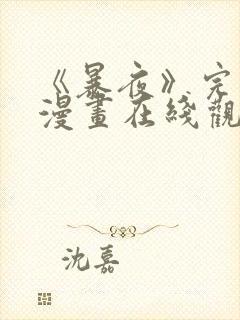 《暴夜》完
漫畫在綫觀
沈嘉